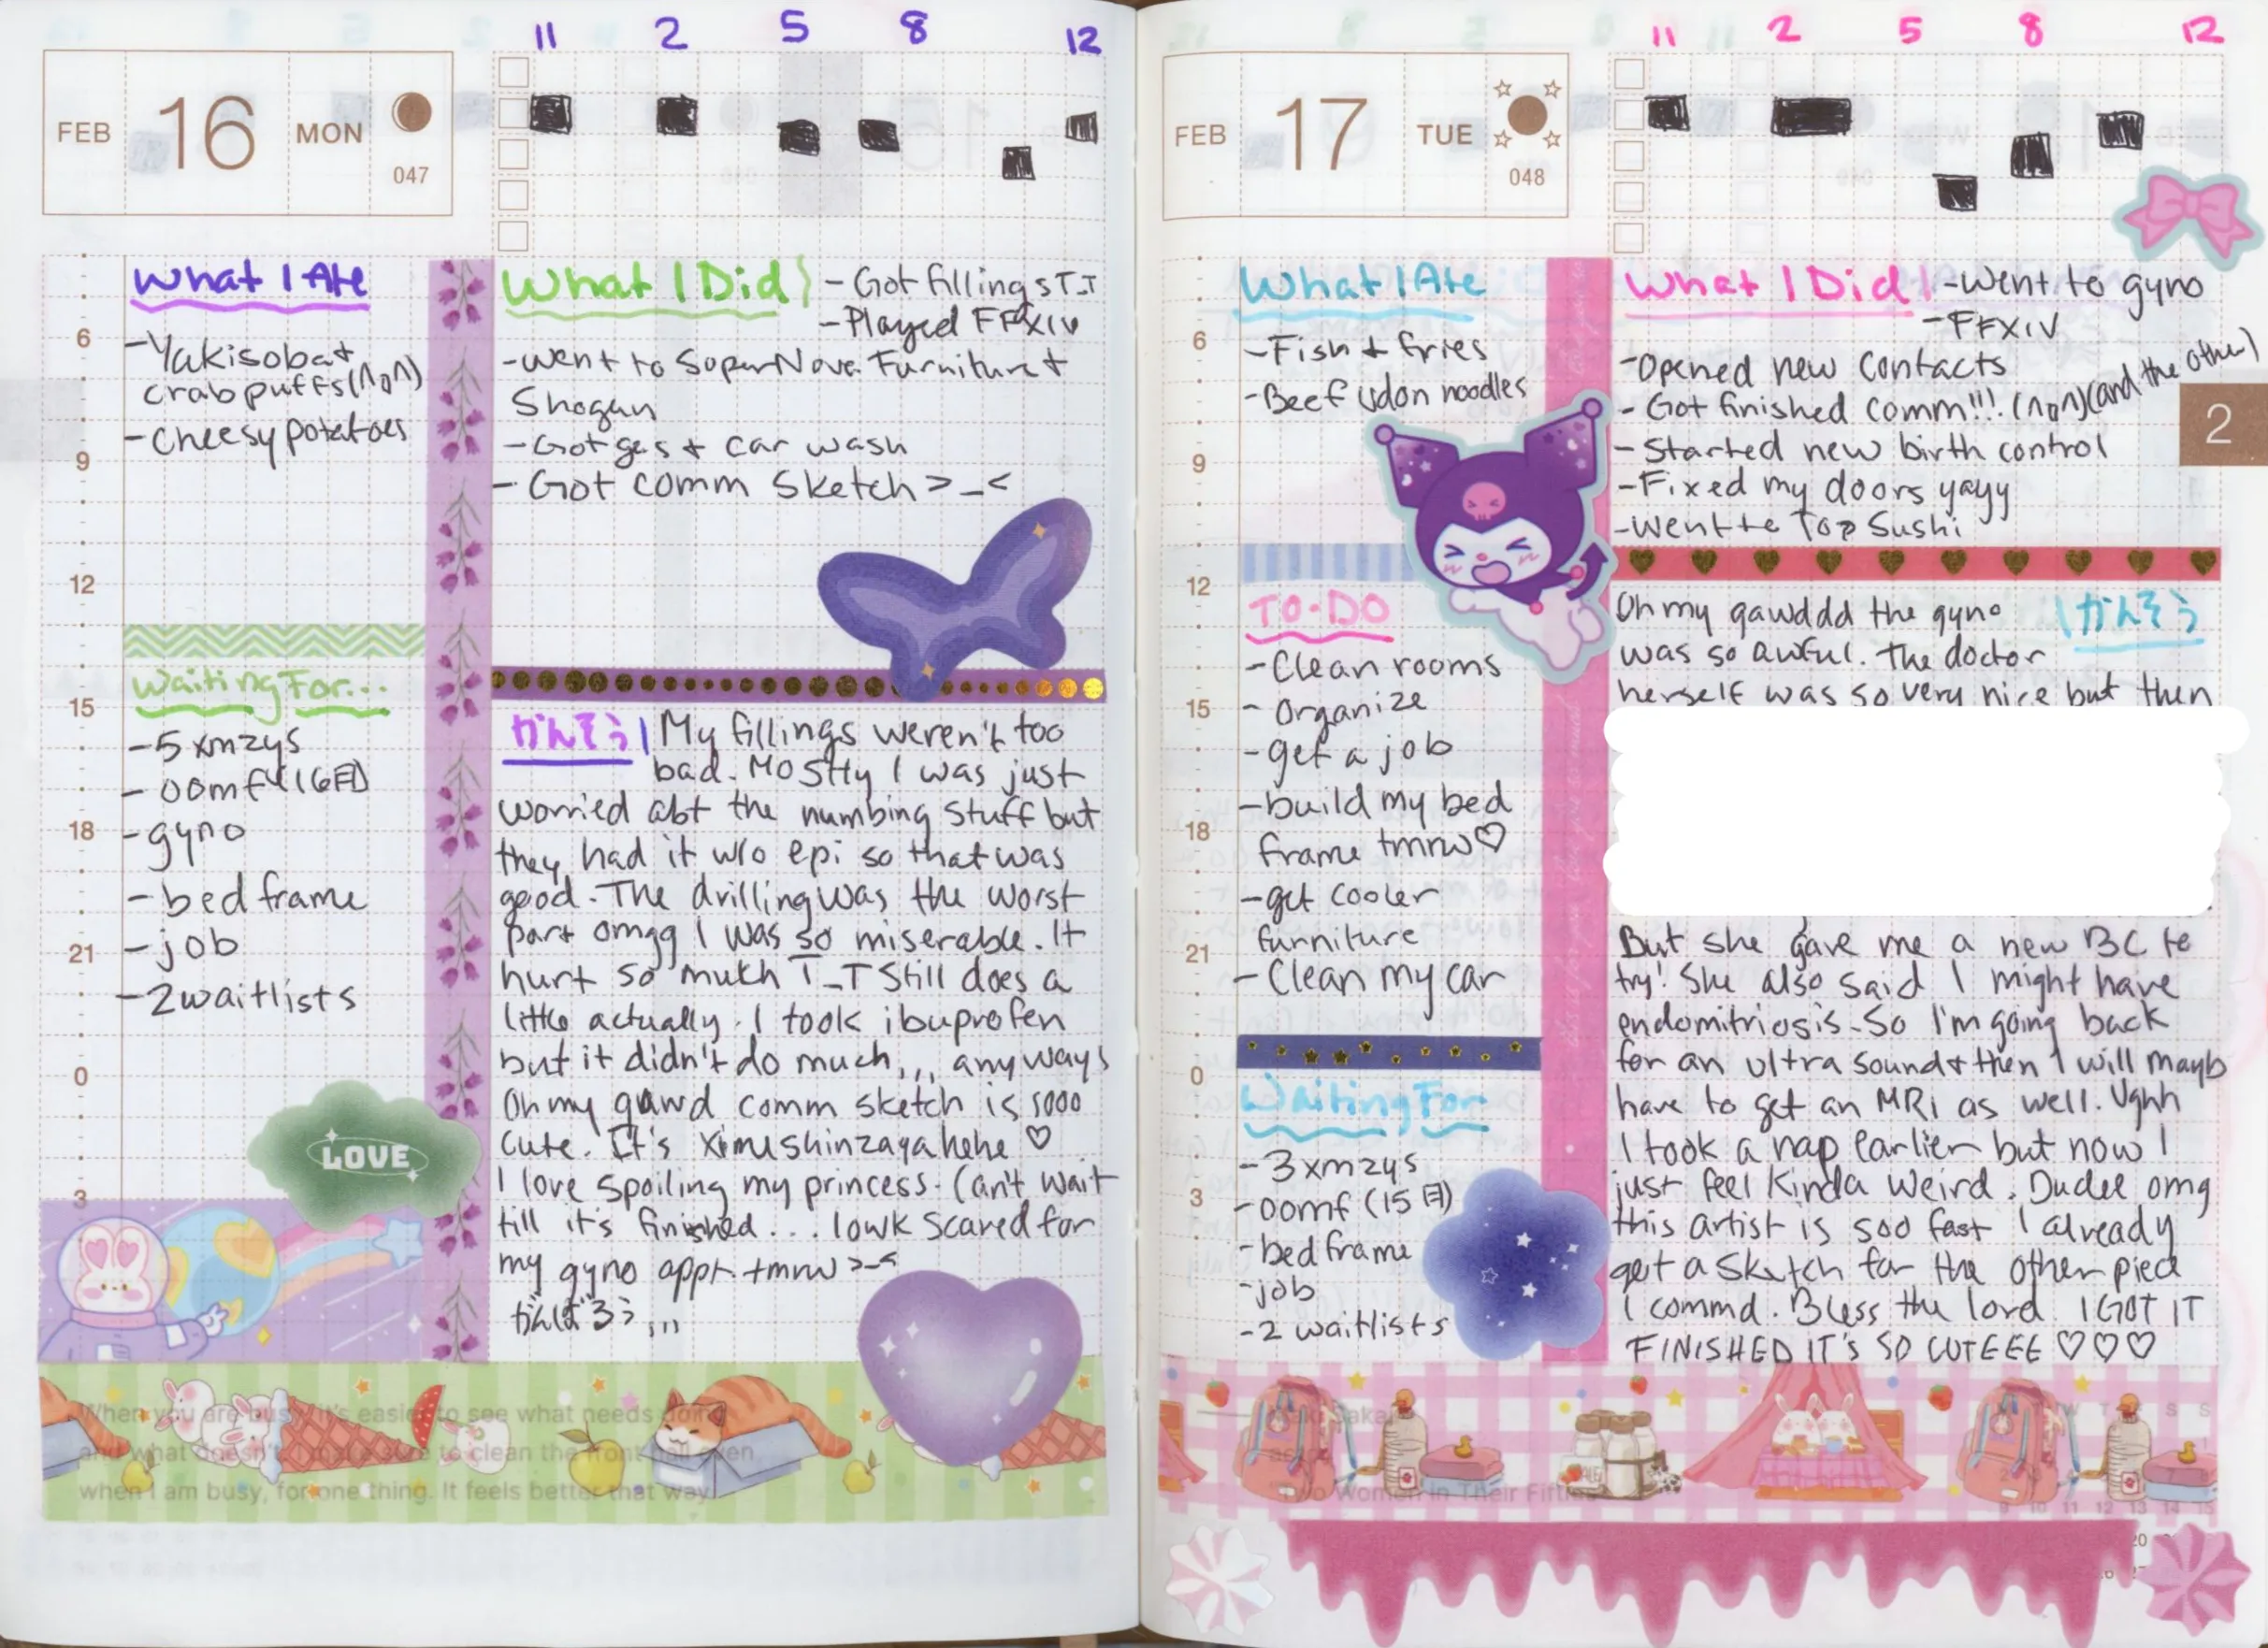 11 2 5 8 12
FEB 16 MON
047
What I Ate
-Yakisoba +
crab puffs (∩o∩)
-cheesy potatoes
6
9
12
15
18
21
0
3
Waiting For...
-5 xmzys
-oomf
-gyno
-bed frame
-job
-2 waitlists
LOVE
What I Did
-Got fillings T_T
-Played FFXIV
-went to SuperNova Furniture +
Shogun
-Got gas + car wash
-Got comm sketch >_<
かんそう
My fillings weren't too
bad. Mostly I was just
worried abt the numbing stuff but
they had it w/o epi so that was
good. The drilling was the worst
part omgg I was so miserable. It
hurt so much T_T Still does a
little actually. I took ibuprofen
but it didn't do much,,, anyways
Oh my gawd comm sketch is sooo
cute. It's hehe ♡
I love spoiling my princess. Can't wait
till it's finished... lowk scared for
my gyno appt. tmrw >_<
がんばろう,,,
When you are busy, it's easier to see what needs doing
and what doesn't. I make sure to clean the front hall even
when I am busy, for one thing. It feels better that way.
11 2 5 8 12
FEB 17 TUE
048
2
What I Ate
-Fish + fries
-Beef udon noodles
6
9
12
15
18
21
0
3
TO-DO
-Clean rooms
-organize
-get a job
-build my bed
frame tmrw♡
-get cooler
furniture
-Clean my car
Waiting For
-3 xmzys
-oomf (15日)
-bed frame
-job
-2 waitlists
What I Did
-Went to gyno
-FFXIV
-Opened new contacts
-Got finished comm!!! (∩o∩) (and the other)
-Started new birth control
-Fixed my doors yayy
-Went to Top Sushi
かんそう
Oh my gawddd the gyno
was so awful. The doctor
herself was so very nice but then
But she gave me a new BC to
try! She also said I might have
endomitriosis. So I'm going back
for an ultra sound + then I will mayb
have to get an MRi as well. Ughh
I took a nap earlier but now I
just feel kinda weird. Dudee omg
this artist is soo fast I already
got a sketch for the other piece
I commd. Bless the lord I GOT IT
FINISHED IT's SO CUTEEE ♡♡♡
Two Women in Their Fifties